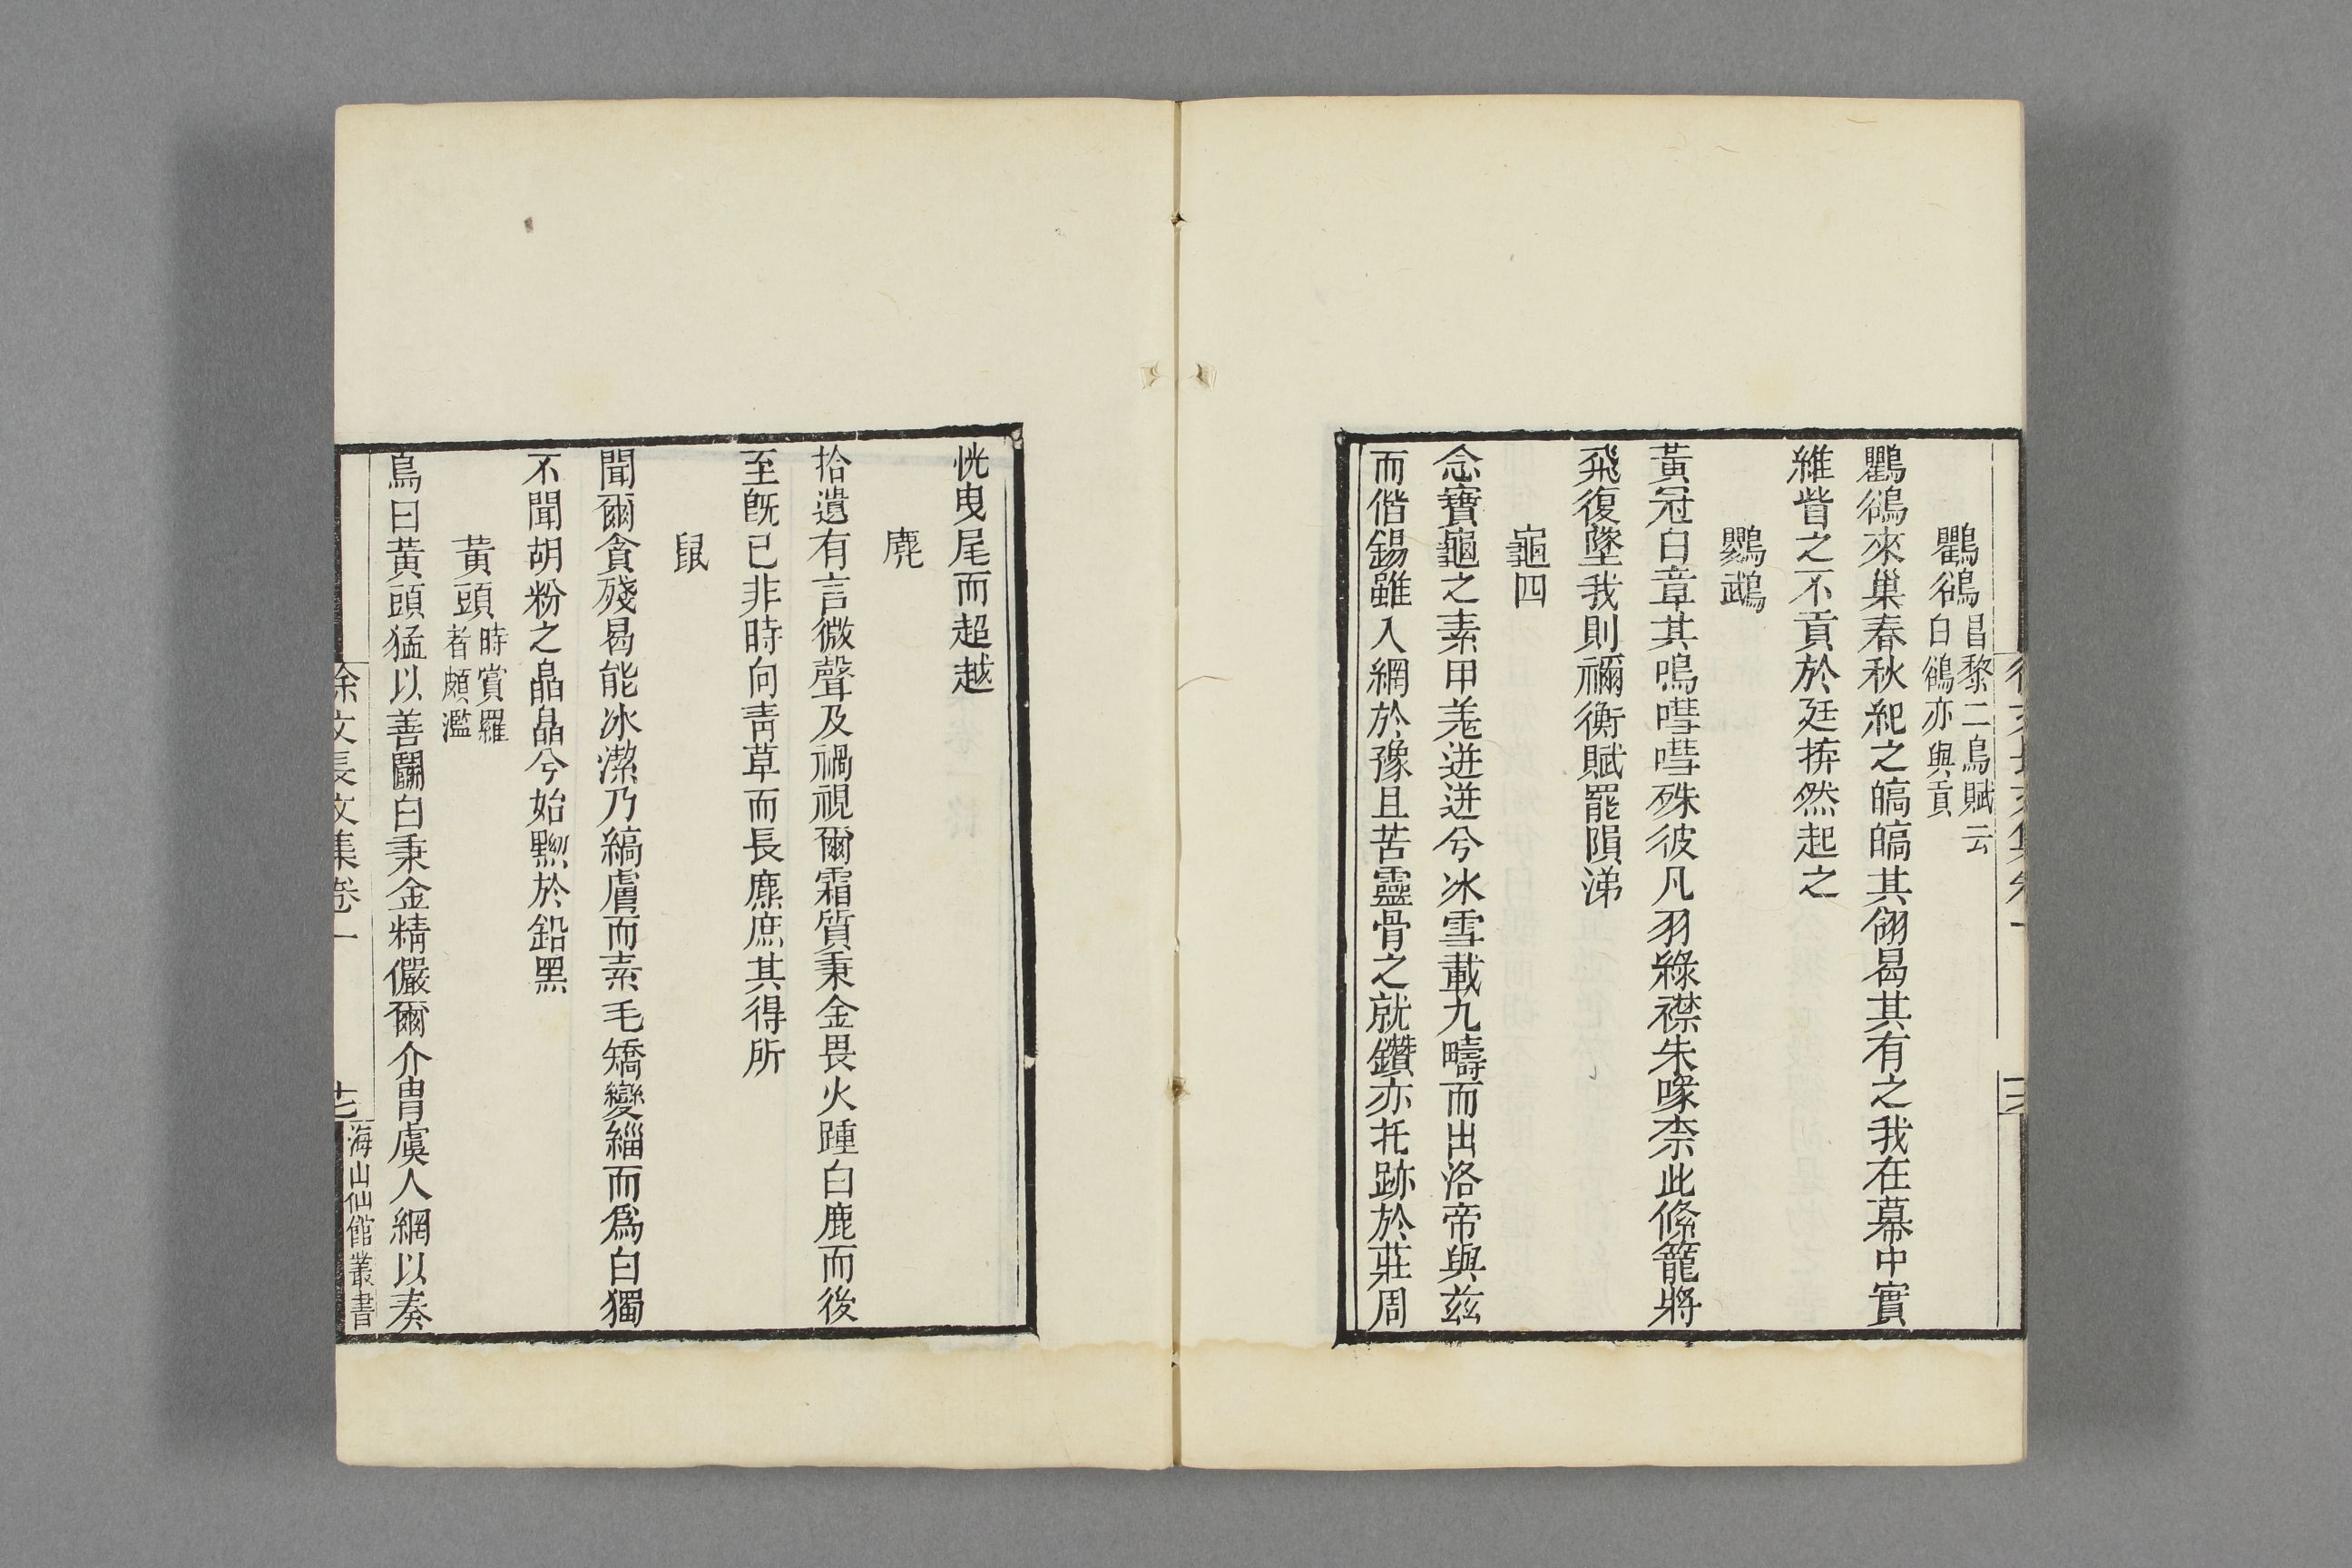 徐文長文集卷一
鸜鵒昌黎二鳥賦云
白鵒亦與貢
鸜鵒來巢春秋紀之皜皜其翎曷其有之我在幕中實
維眥之不貢於廷拚然起之
鸚鵡
黃冠白章其鳴嘒嘒殊彼凡羽綠襟朱喙柰此絛籠將
飛復墜我則禰衡賦罷隕涕
龜四
念寶龜之素甲羗迸迸兮冰雪載九疇而出洛帝與玆
而偕錫雖入網於豫且苦靈骨之就鑽亦托跡於莊周
恍曳尾而超越
麂
拾遺有言微聲及禍視爾霜質秉金畏火踵白鹿而後
至旣已非時向靑草而長麃庶其得所
鼠
聞爾貪殘曷能冰潔乃縞膚而素毛矯變緇而爲白獨
不聞胡粉之皛皛兮始黝於鉛黑
黃頭時賞羅
者頗濫
鳥曰黃頭猛以善鬭白秉金精儼爾介冑虞人網以奏
徐文長文集卷一
十七
海山仙館叢書